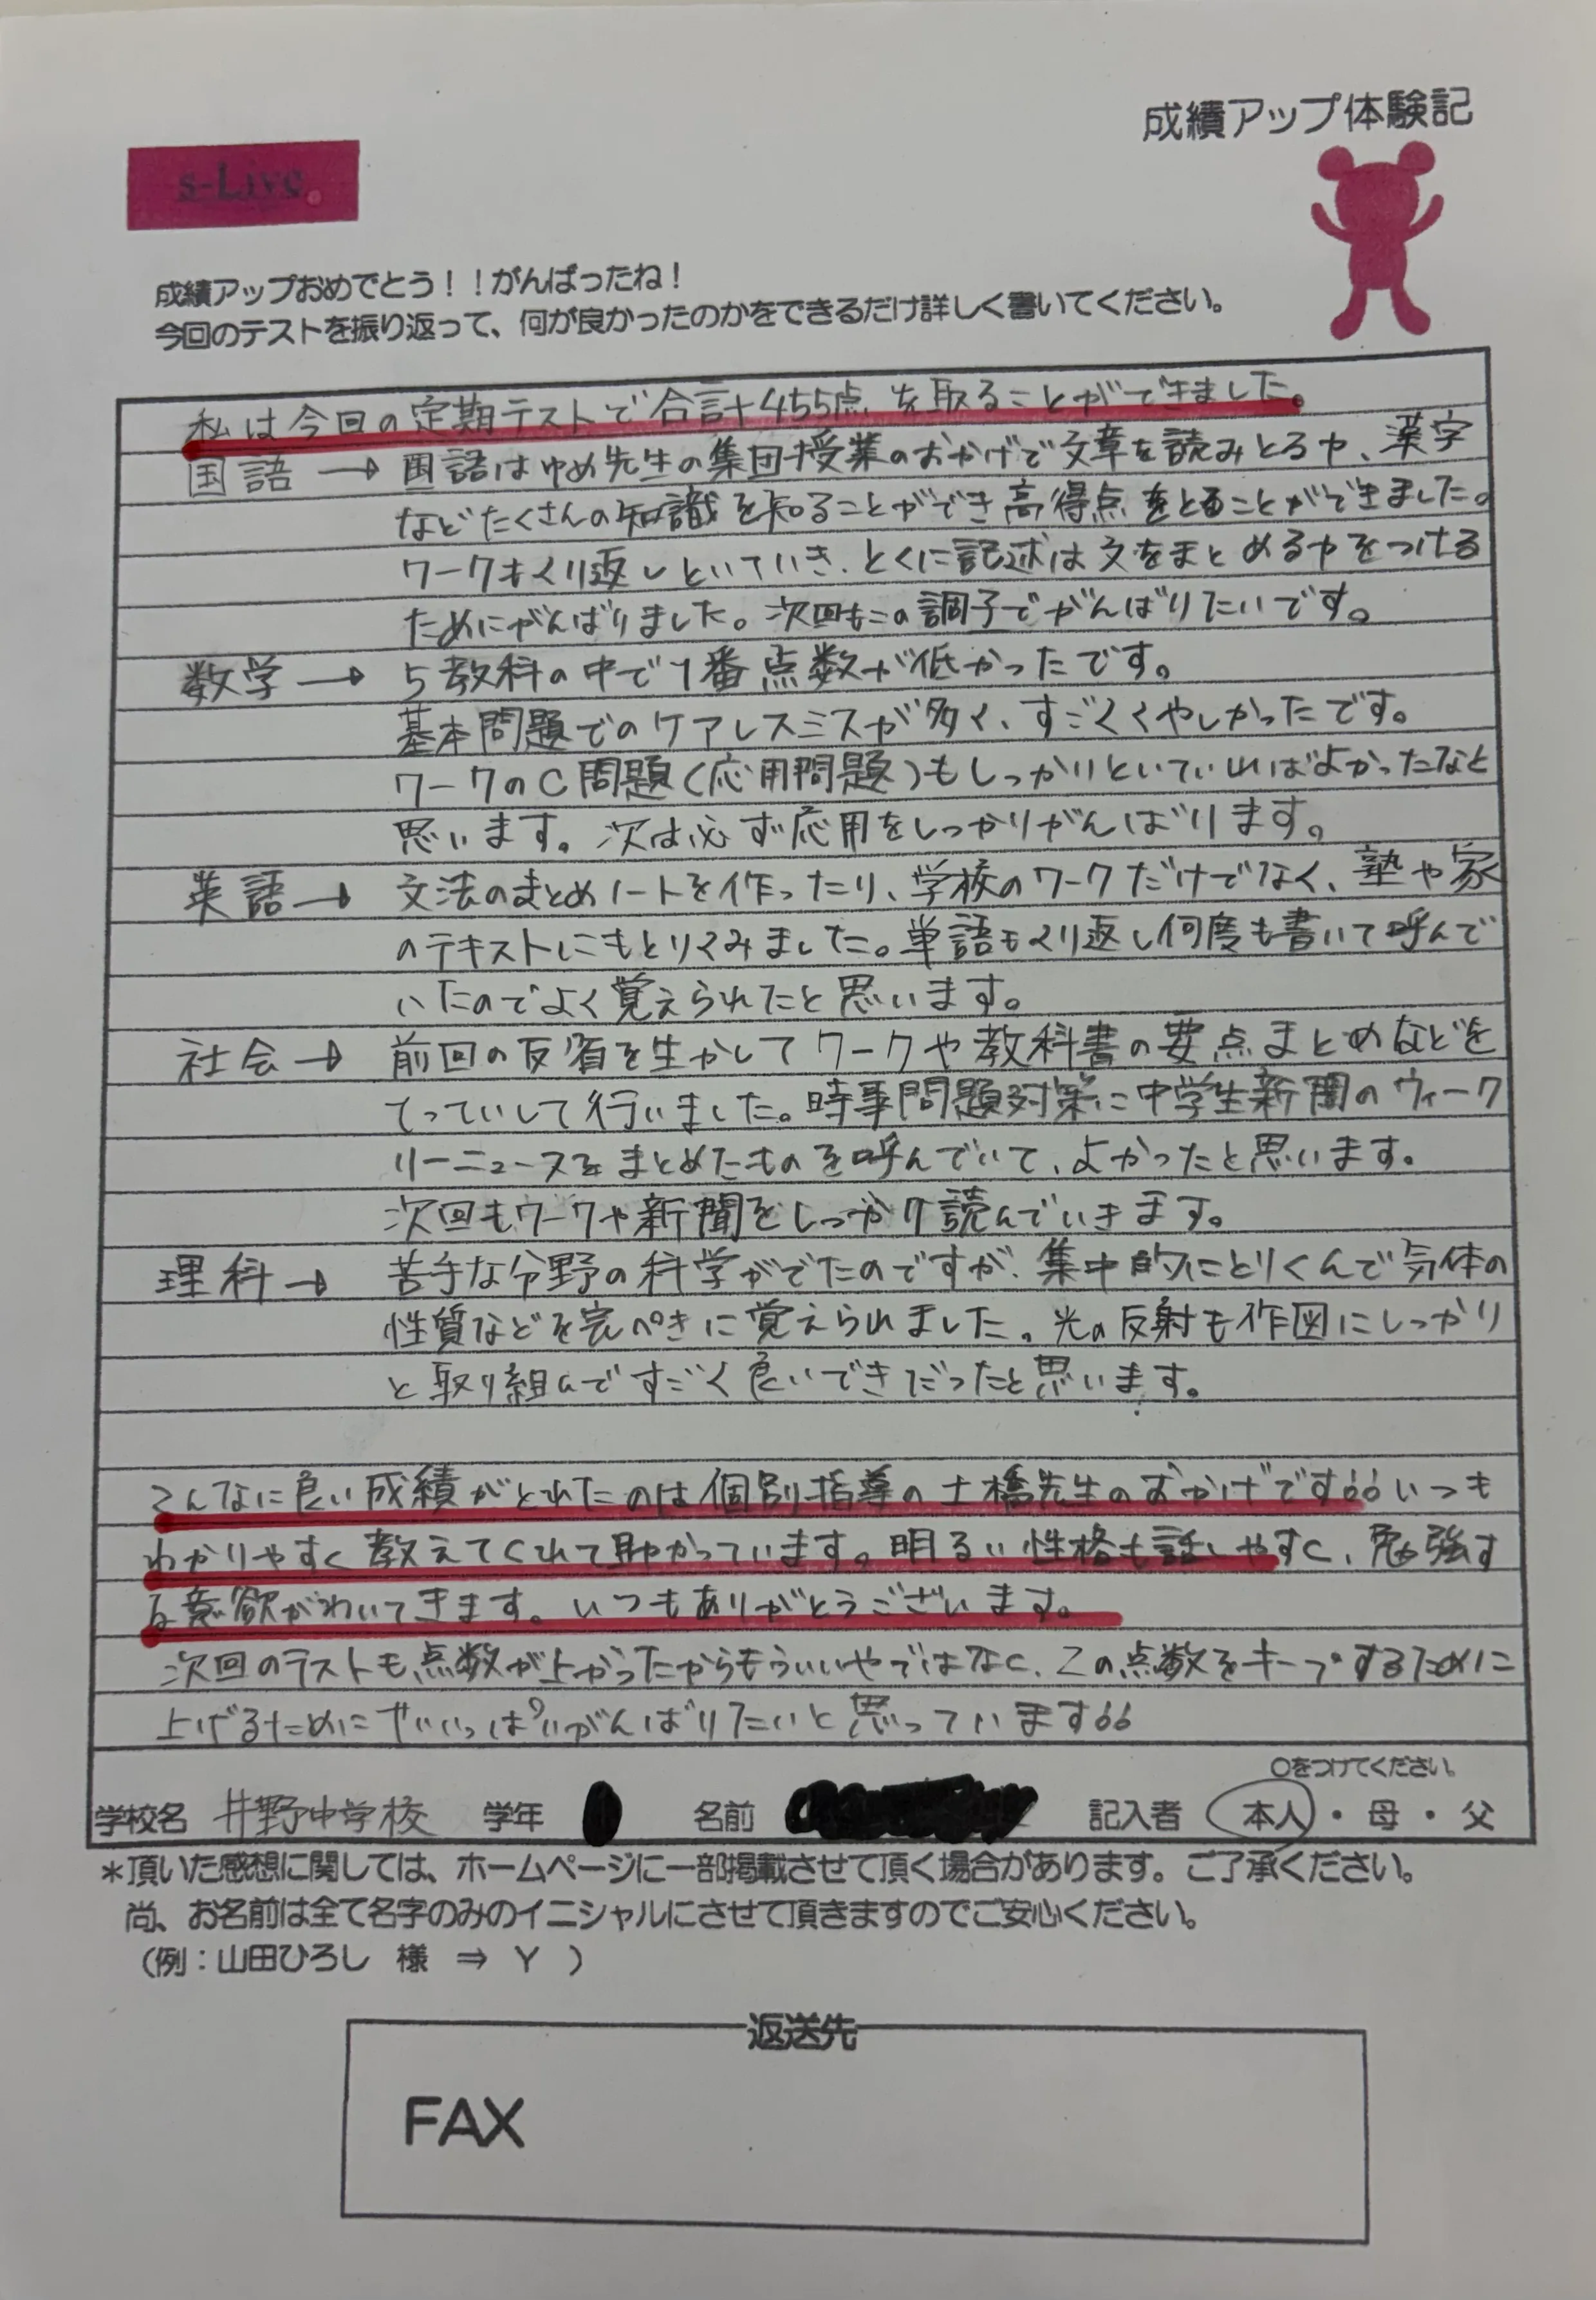 成績アップ体験記
s-Live
成績アップおめでとう！！がんばったね！
今回のテストを振り返って、何が良かったのかをできるだけ詳しく書いてください。
私は今回の定期テストで合計455点を取ることができました。
国語→国語はゆめ先生の集団授業のおかげで文章を読みとる力、漢字
などたくさんの知識を知ることができ高得点をとることができました。
ワークもくり返しといていき、とくに記述は文をまとめる力をつける
ためにがんばりました。次回もこの調子でがんばりたいです。
数学→5教科の中で1番点数が低かったです。
基本問題でのケアレスミスが多く、すごくくやしかったです。
ワークのC問題(応用問題)もしっかりといていればよかったなと
思います。次は必ず応用をしっかりがんばります。
英語→文法のまとめノートを作ったり、学校のワークだけでなく、塾や家
のテキストにもとりくみました。単語もくり返し何度も書いて呼んで
いたのでよく覚えられたと思います。
社会→前回の反省を生かしてワークや教科書の要点まとめなどを
てっていして行いました。時事問題対策に中学生新聞のウィーク
リーニュースをまとめたものを呼んでいて、よかったと思います。
次回もワークや新聞をしっかり読んでいきます。
理科→苦手な分野の科学がでたのですが、集中的にとりくんで気体の
性質などを完ぺきに覚えられました。光の反射も作図にしっかり
と取り組んですごく良いできだったと思います。
こんなに良い成績がとれたのは個別指導の土橋先生のおかげです!!いつも
わかりやすく教えてくれて助かっています。明るい性格も話しやすく、勉強す
る意欲がわいてきます。いつもありがとうございます。
次回のテストも点数が上がったからもういいやではなく、この点数をキープするために
上げるためにせいいっぱいがんばりたいと思っています!!
○をつけてください。
学校名 井野中学校 学年 名前 記入者 本人・母・父
*頂いた感想に関しては、ホームページに一部掲載させて頂く場合があります。ご了承ください。
尚、お名前は全て名字のみのイニシャルにさせて頂きますのでご安心ください。
（例：山田ひろし 様 ⇒ Y ）
返送先
FAX